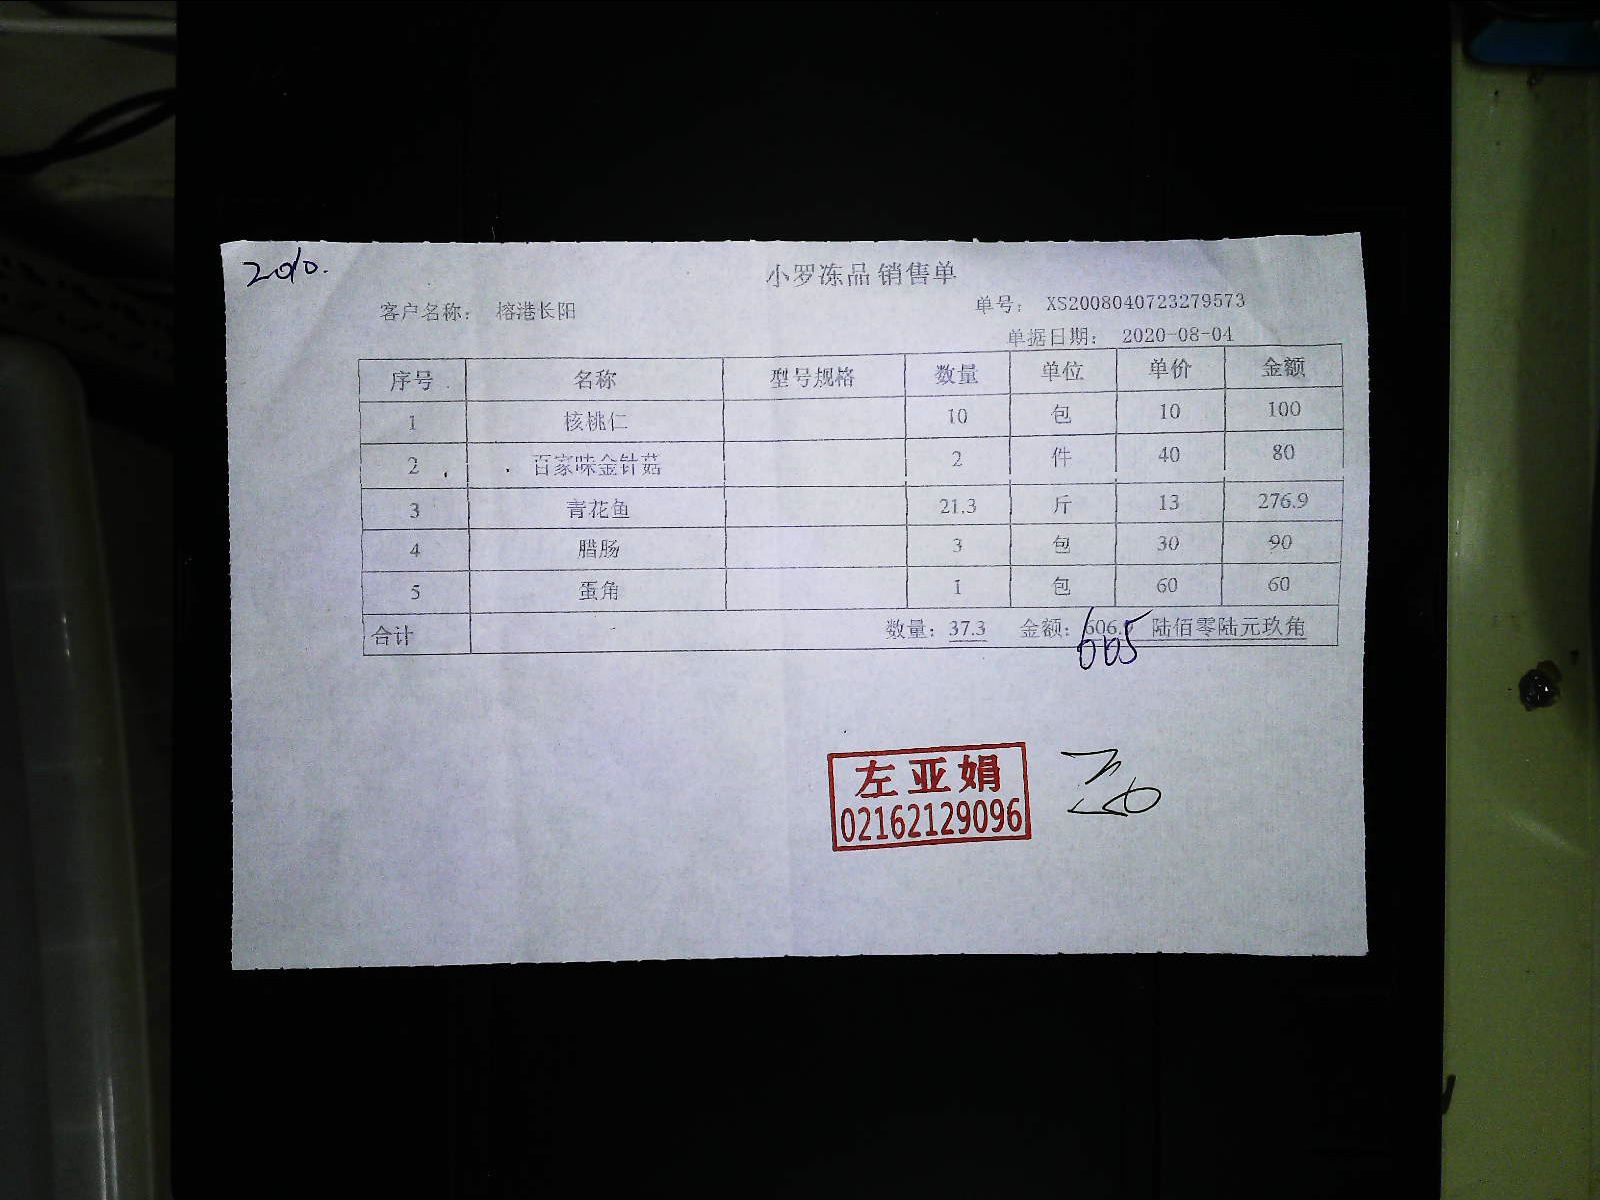 2010.
小罗冻品 销售单
客户名称： 榕港长阳 单号： XS2008040723279573
单据日期： 2020-08-04
序号 名称 型号规格 数量 单位 单价 金额
1 核桃仁 10 包 10 100
2 百家味金针菇 2 件 40 80
3 青花鱼 21.3 斤 13 276.9
4 腊肠 3 包 30 90
5 蛋角 1 包 60 60
合计 数量：37.3 金额：606.9 陆佰零陆元玖角
605
左亚娟
02162129096